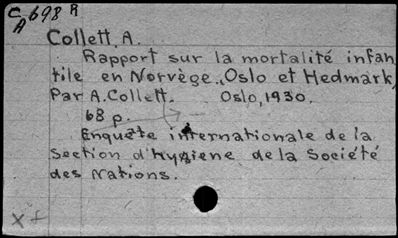 C 698 R
A
Collett, A.
Rapport sur la mortalité infan
tile en Norvège., Oslo et Hedmark,
Par A. Collett. Oslo, 1930.
68 p.
Enquête internationale de la
Section d'hygiene de la Société
des Nations.
x f